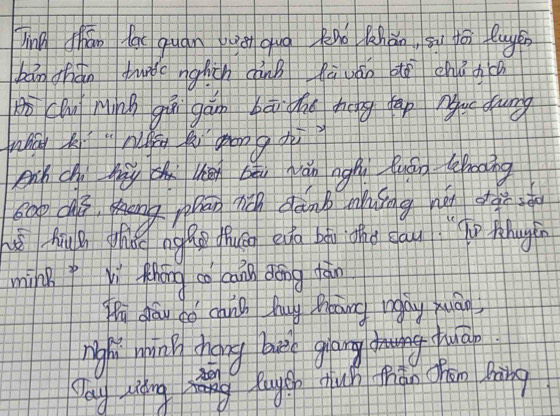 Tinh thần lạc quan vượt qua khó khăn, sự tôi luyện
bản thân trước nghịch cảnh là vấn đề chủ tịch
Hồ Chí Minh gửi gắm bài thơ trong tập ngục trung
nhật kí "nhật kí trong tù"
Anh chị hãy viết bài văn nghị luận khoảng
600 chữ, phân tích đánh những nét đặc sắc
về hình thức nghệ thuật của bài thơ sau. "Tự khuyên
mình" Ví không có cảnh đông tàn.
Thì đâu có cảnh huy hoàng ngày xuân,
Nghĩ mình trong bước giang truân.
Tay ương rèn luyện tinh thần thêm hăng